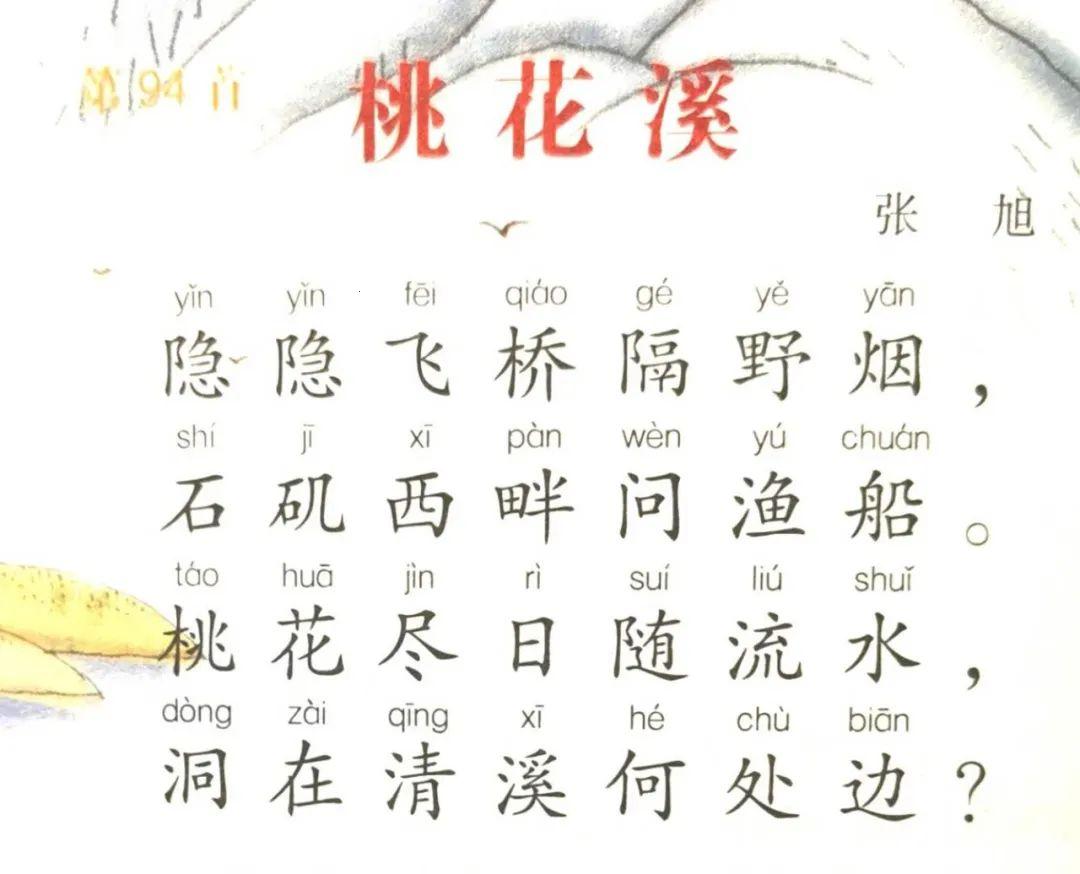 第94首
桃花溪
张 旭
yǐn yǐn fēi qiáo gé yě yān
隐隐飞桥隔野烟，
shí jī xī pàn wèn yú chuán
石矶西畔问渔船。
táo huā jìn rì suí liú shuǐ
桃花尽日随流水，
dòng zài qīng xī hé chù biān
洞在清溪何处边？